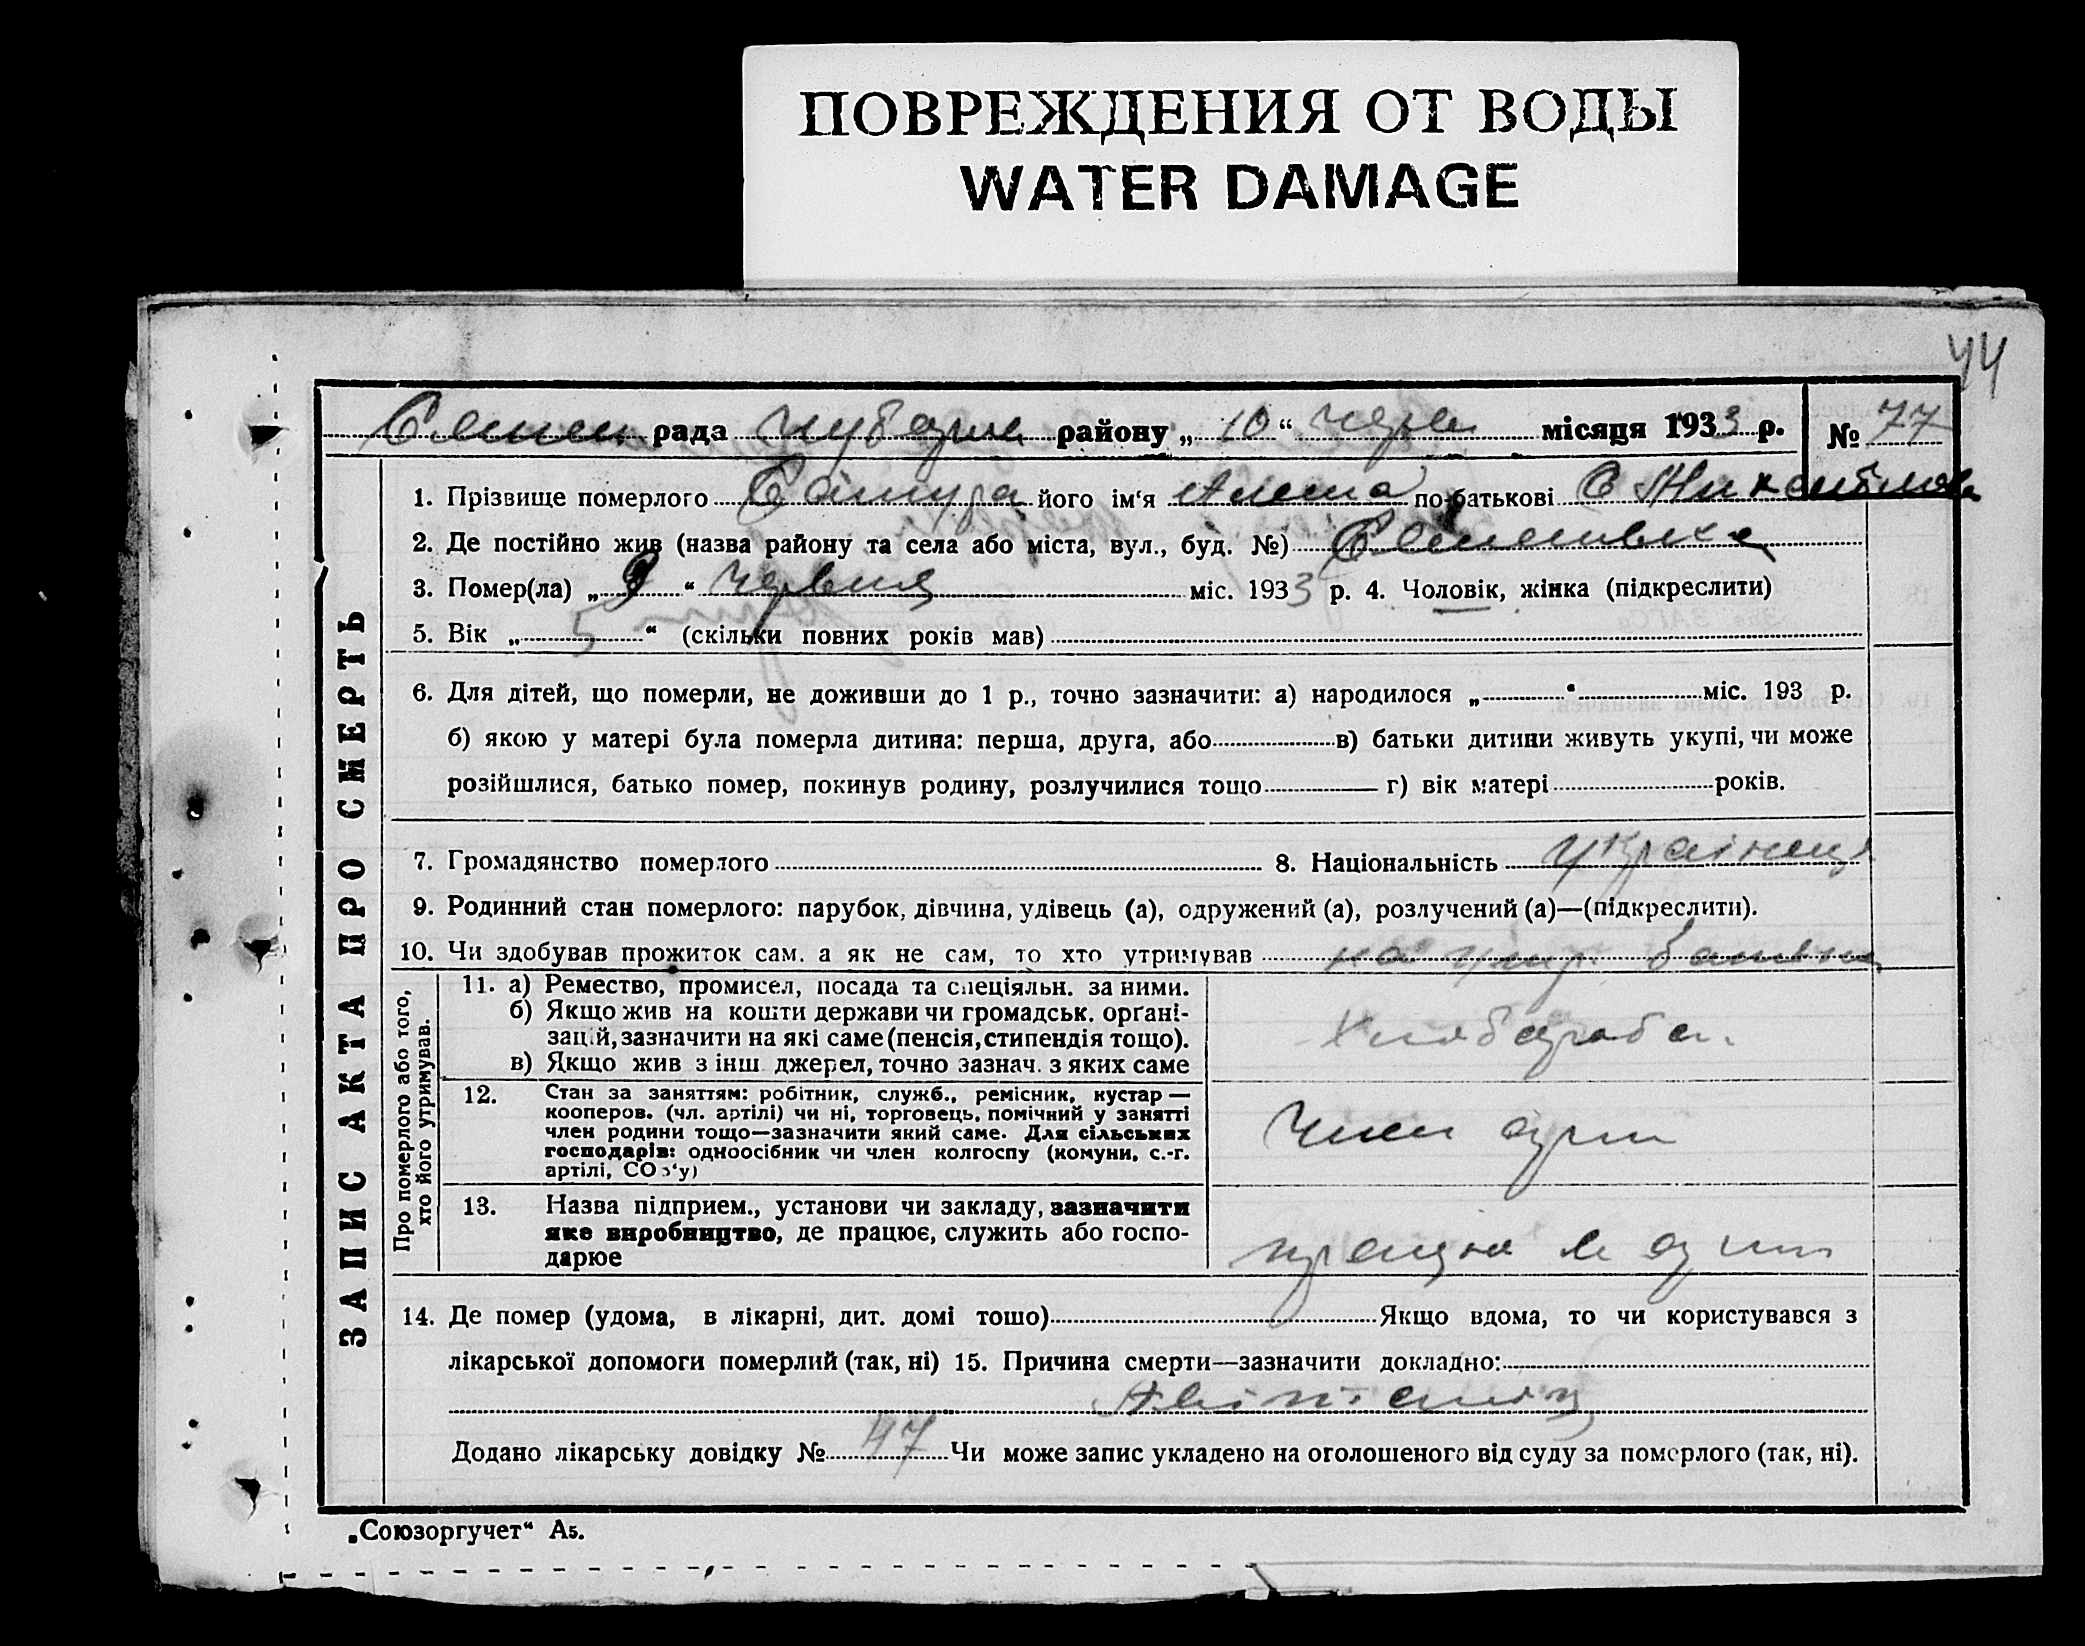 ПОВРЕЖДЕНИЯ ОТ ВОДЫ
WATER DAMAGE
44
рада района „ 10 “ черв місяця 1933 р. № 77
1. Прізвище померлого його ім‘я по-батькові
2. Де постійно жив (назва району та села або міста, вул., буд. №)
3. Помер(ла) „ 9 “ червня міс. 1933 р. 4. Чоловік, жінка (підкреслити)
5. Вік „ 5 “ (скільки повних років мав)
6. Для дітей, що померли, не доживши до 1 р., точно зазначити: а) народилося „ “ міс. 193 р.
б) якою у матері була померла дитина: перша, друга, або в) батьки дитини живуть укупі, чи може
розійшлися, батько помер, покинув родину, розлучилися тощо г) вік матері років.
7. Громадянство померлого 8. Національність українец
9. Родинний стан померлого: парубок, дівчина, удівець (а), одружений (а), розлучений (а)—(підкреслити).
10. Чи здобував прожиток сам, а як не сам, то хто утримував на утр. батька
ЗАПИС АКТА ПРО СМЕРТЬ
Про померлого або того,
хто його утримував.
11. а) Ремество, промисел, посада та спеціяльн. за ними.
б) Якщо жив на кошти держави чи громадськ. орґані-
зацій, зазначити на які саме (пенсія, стипендія тощо).
в) Якщо жив з інш джерел, точно зазнач. з яких саме
Хлібороб
12. Стан за заняттям: робітник, служб., ремісник, кустар —
кооперов. (чл. артілі) чи ні, торговець, помічний у занятті
член родини тощо—зазначити який саме. Для сільських
господарів: одноосібник чи член колгоспу (комуни, с.-г.
артілі, СОЗ‘у)
Член арт
13. Назва підприєм., установи чи закладу, зазначити
яке виробництво, де працює, служить або госпо-
дарює
14. Де помер (удома, в лікарні, дит. домі тощо) Якщо вдома, то чи користувався з
лікарської допомоги померлий (так, ні) 15. Причина смерти—зазначити докладно:
Додано лікарську довідку № 47 Чи може запис укладено на оголошеного від суду за померлого (так, ні).
„Союзоргучет“ А5.